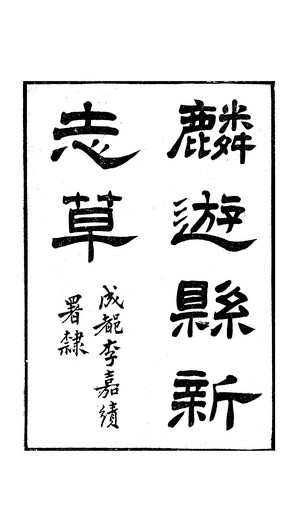 麟遊縣新
志草
成都李嘉績
署隸